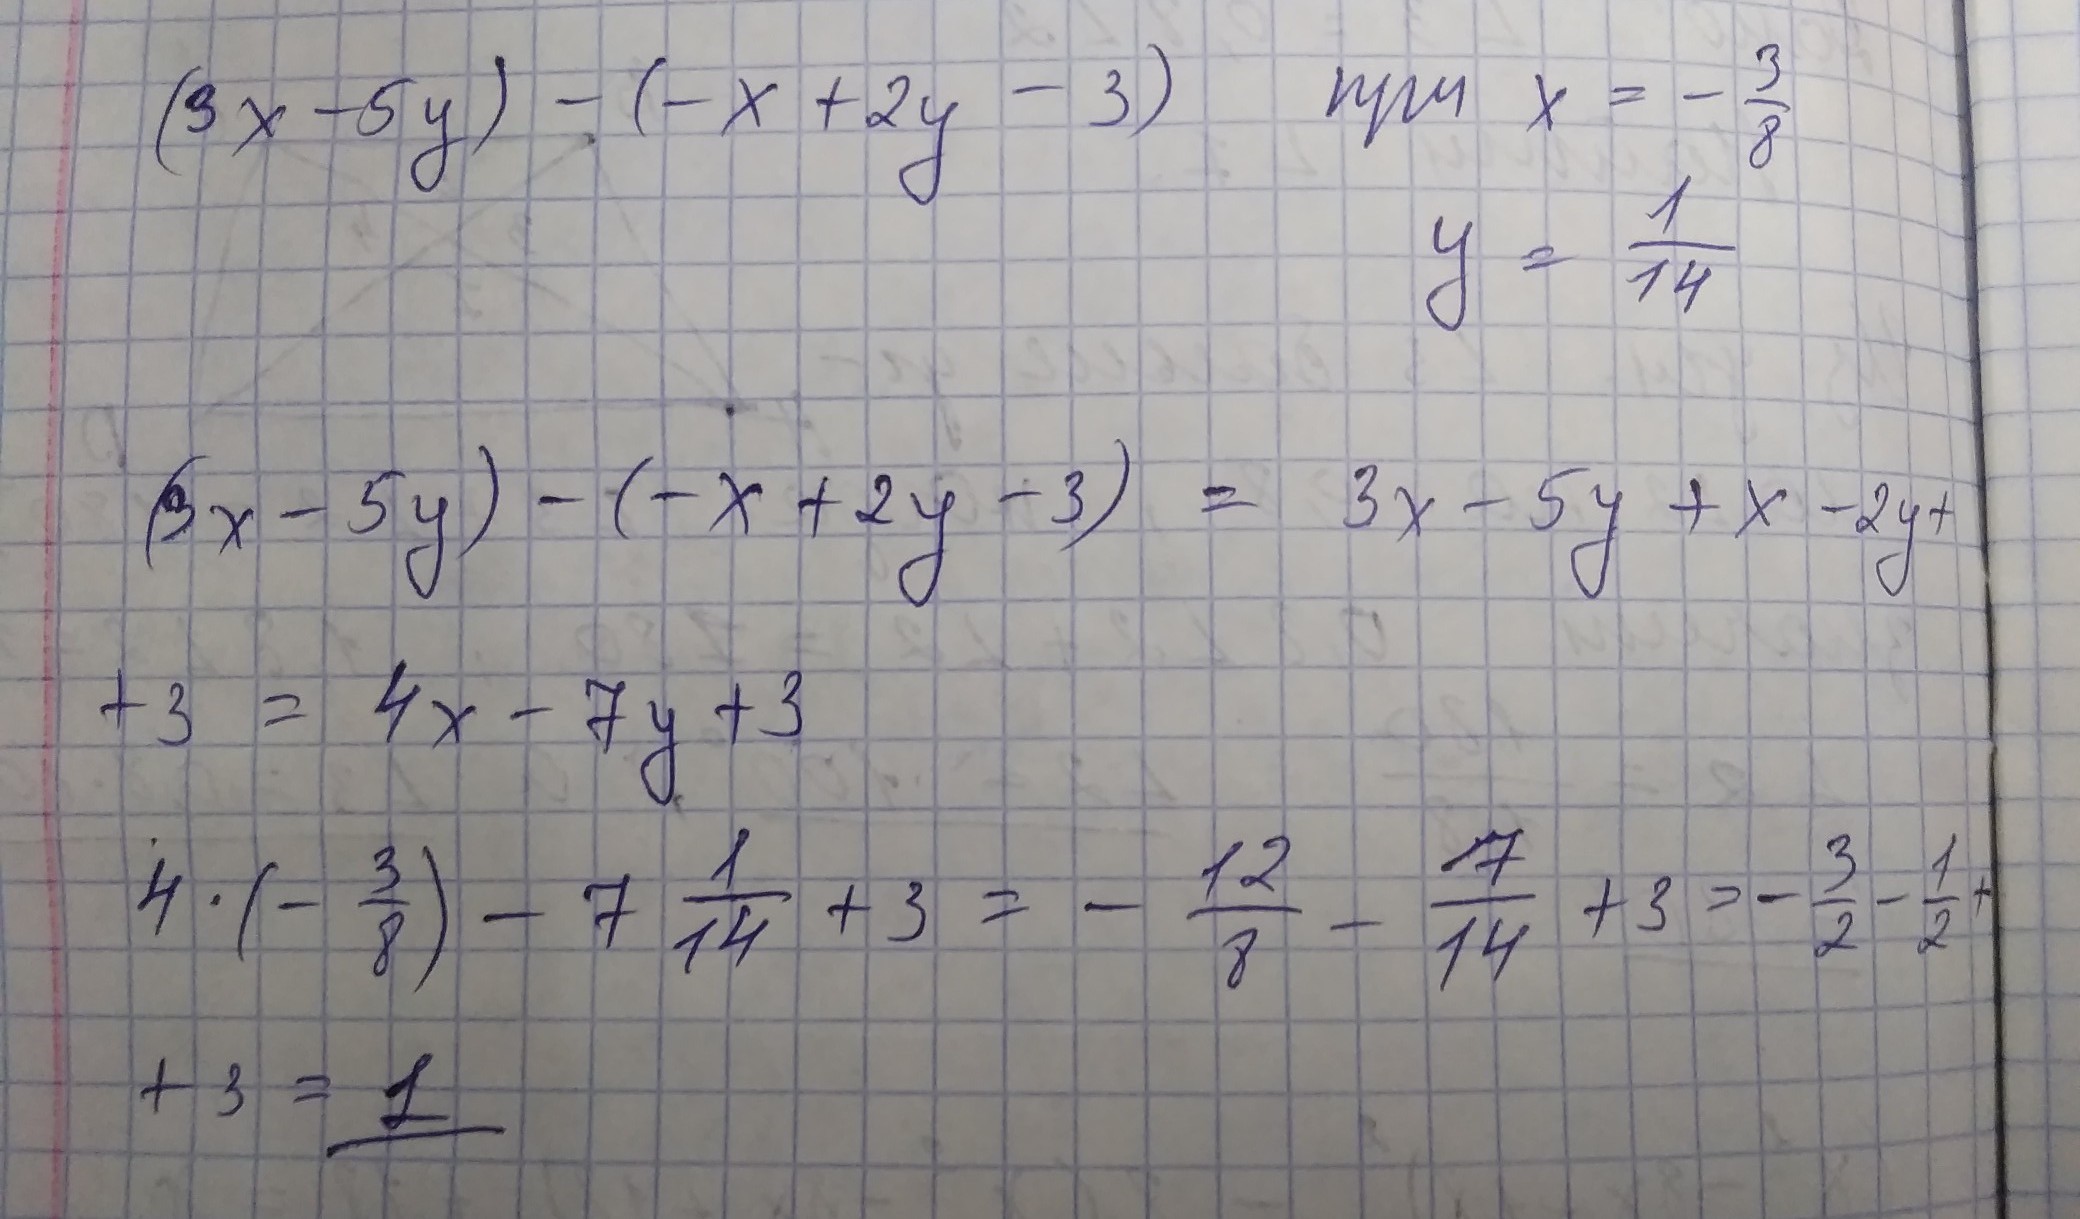 (3x - 5y) - (-x + 2y - 3) при x = - 3/8
y = 1/14
(3x - 5y) - (-x + 2y - 3) = 3x - 5y + x - 2y +
+ 3 = 4x - 7y + 3
4 · (- 3/8) - 7 1/14 + 3 = - 12/8 - 7/14 + 3 = - 3/2 - 1/2 +
+ 3 = 1